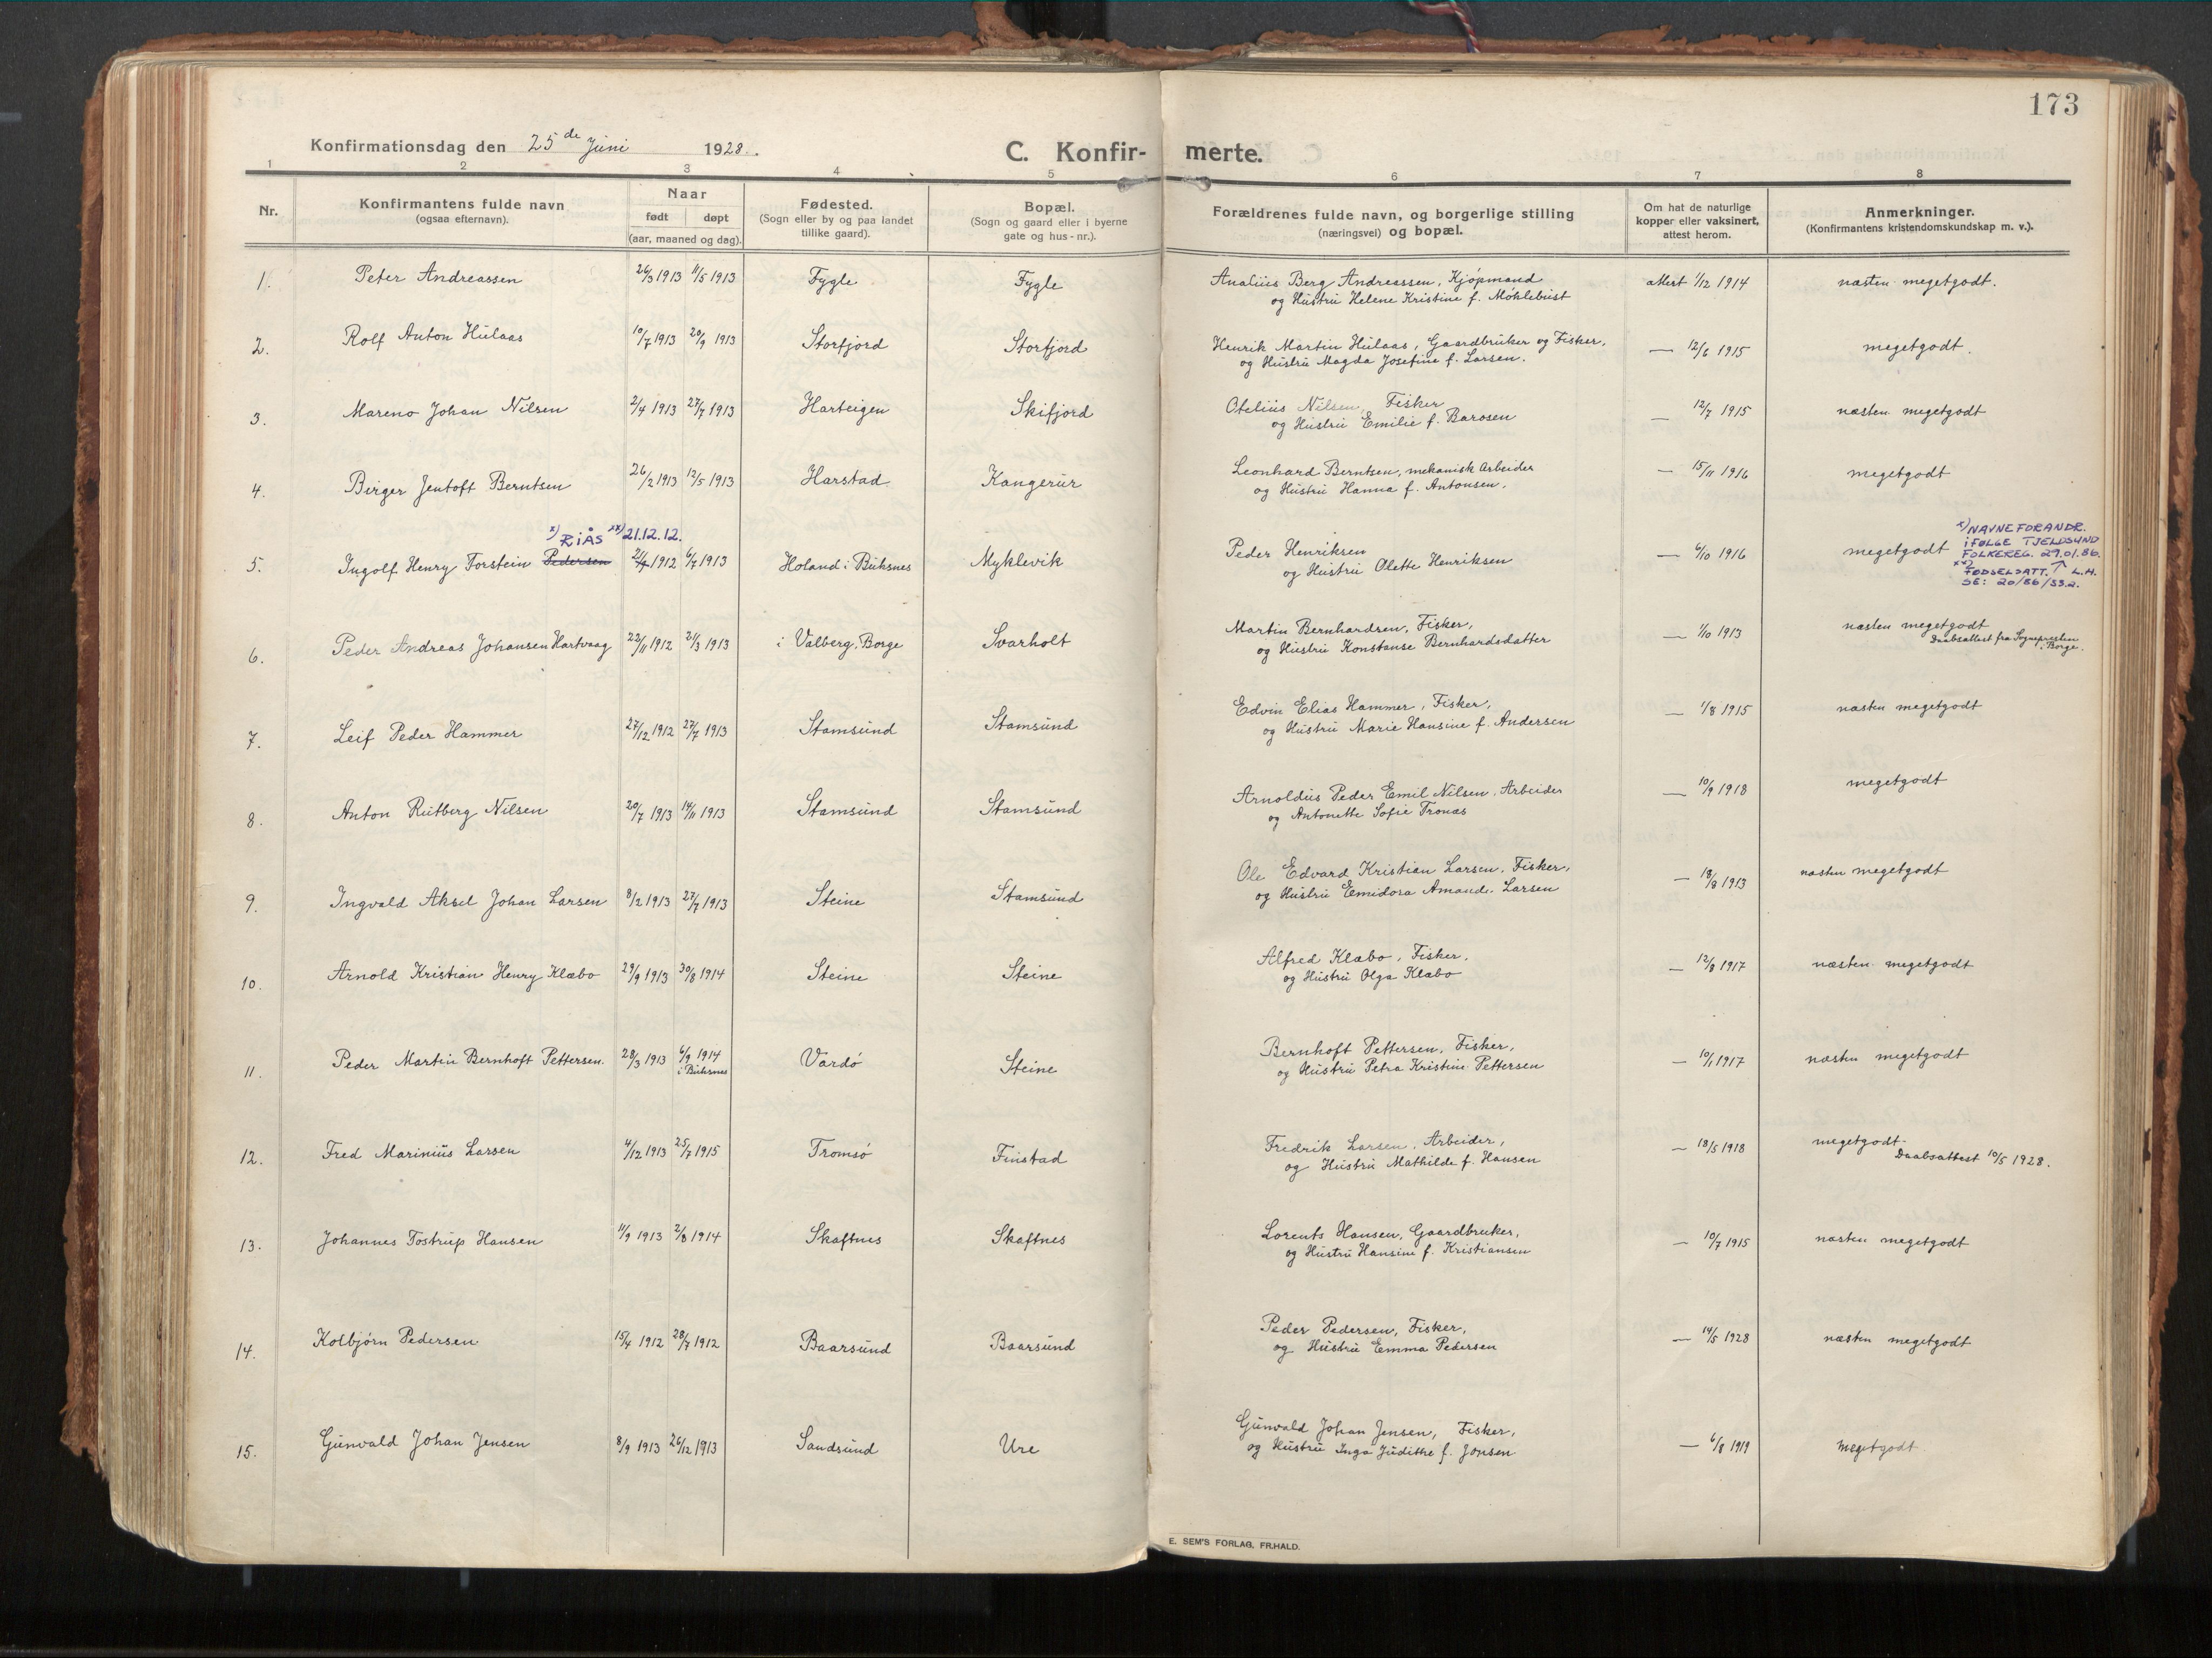 173
Konfirmationsdag den 25de Juni 1928.
C. Konfir- merte.
1 2 3 4 5 6 7 8
Nr.
Konfirmantens fulde navn
(ogsaa efternavn).
Naar
født døpt
(aar, maaned og dag).
Fødested.
(Sogn eller by og paa landet
tillike gaard).
Bopæl.
(Sogn og gaard eller i byerne
gate og hus-nr.).
Forældrenes fulde navn, og borgerlige stilling
(næringsvei) og bopæl.
Om hat de naturlige
kopper eller vaksinert,
attest herom.
Anmerkninger.
(Konfirmantens kristendomskundskap m. v.).
1. Peter Andreassen 26/3 1913 11/5 1913 Fygle Fygle Analius Berg Andreassen, Kjøpmand attest 1/12 1914 næsten megetgodt.
og Hustru Helene Kristine f. Møklebust
2. Rolf Anton Hulaas 10/7 1913 20/9 1913 Storfjord Storfjord Henrik Martin Hulaas, Gaardbruker og Fisker, — 12/6 1915 megetgodt.
og Hustru Magda Josefine f. Larsen.
3. Mareno Johan Nilsen 2/4 1913 27/7 1913 Harteigen Skifjord Otelius Nilsen, Fisker — 12/7 1915 næsten megetgodt
og Hustru Emilie f. Barosen
4. Birger Jentoft Berntsen 26/2 1913 12/5 1913 Harstad Kangerur Leonhard Berntsen, mekanisk Arbeider — 15/11 1916 megetgodt
og Hustru Hanna f. Antonsen.
x) RIÅS xx) 21.12.12.
5. Ingolf Henry Torstein Pedersen 21/4 1912 6/7 1913 Holand i Buksnes Myklevik Peder Henriksen — 6/10 1916 megetgodt
og Hustru Olette Henriksen
x) NAVNEFORANDR.
IFØLGE TJELDSUND
FOLKEREG. 29.01.86.
xx) FØDSELSATT. ↑ L.H.
SE: 20/86/33.2.
6. Peder Andreas Johansen Hartvaag 22/11 1912 21/3 1913 i Valberg, Borge Svarholt Martin Bernhardsen, Fisker, — 1/10 1913 næsten megetgodt
og Hustru Konstanse Bernhardsdatter
Daabsattest fra Sognepresten
i Borge.
7. Leif Peder Hammer 27/12 1912 27/7 1913 Stamsund Stamsund Edvin Elias Hammer, Fisker, — 1/8 1915 næsten megetgodt
og Hustru Marie Hansine f. Andersen
8. Anton Rutberg Nilsen 20/7 1913 14/11 1913 Stamsund Stamsund Arnoldus Peder Emil Nilsen, Arbeider — 10/9 1918 megetgodt
og Antonette Sofie Tronas
9. Ingvald Aksel Johan Larsen 8/2 1913 27/7 1913 Steine Stamsund Ole Edvard Kristian Larsen, Fisker, — 18/8 1913 næsten megetgodt
og Hustru Emidora Amanda Larsen
10. Arnold Kristian Henry Klæbo 29/9 1913 30/8 1914 Steine Steine Alfred Klæbo, Fisker, — 12/8 1917 næsten megetgodt
og Hustru Olga Klæbo
11. Peder Martin Bernhoft Pettersen. 28/3 1913 6/9 1914 Vardø Steine Bernhoft Pettersen, Fisker, — 10/1 1917 næsten megetgodt
i Buksnes
og Hustru Petra Kristine Pettersen
12. Fred Marinius Larsen 4/12 1913 25/7 1915 Tromsø Finstad Fredrik Larsen, Arbeider, — 18/5 1918 megetgodt.
og Hustru Mathilde f. Hansen
Daabsattest 10/5 1928.
13. Johannes Tostrup Hansen 11/9 1913 2/8 1914 Skaftnes Skaftnes Lorents Hansen, Gaardbruker, — 10/7 1915 næsten megetgodt
og Hustru Hansine f. Kristiansen
14. Kolbjørn Pedersen 15/4 1912 28/7 1912 Baarsund Baarsund Peder Pedersen, Fisker, — 14/5 1928 næsten megetgodt
og Hustru Emma Pedersen
15. Gunvald Johan Jensen 8/9 1913 26/12 1913 Sandsund Ure Gunvald Johan Jensen, Fisker, — 6/8 1919 megetgodt
og Hustru Inga Judithe f. Jonsen
E. SEM'S FORLAG, FR.HALD.